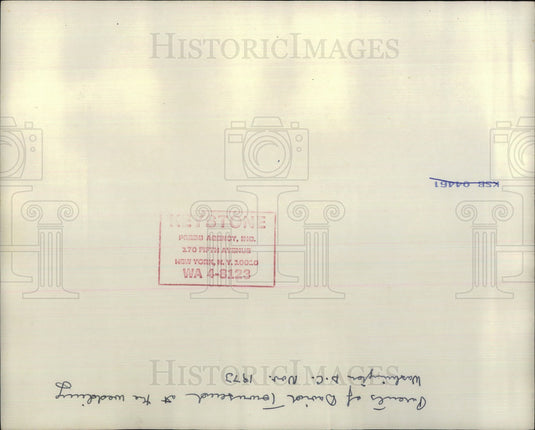 HISTORICIMAGES
KSB 04461
KEYSTONE
PRESS AGENCY, INC.
170 FIFTH AVENUE
NEW YORK, N. Y. 10010
WA 4-8123
Parents of David Townsend at the wedding
Washington D.C. Nov. 1973
HISTORICIMAGES